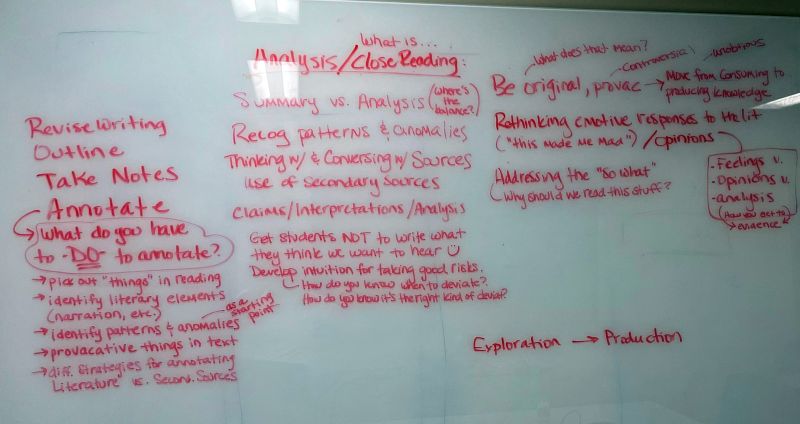 Revise Writing
Outline
Take Notes
Annotate
What do you have
to -DO- to annotate?
→ pick out "things" in reading
→ identify literary elements
(narration, etc.)
→ identify patterns & anomalies
as a
starting
point
→ provacative things in text
→ diff. strategies for annotating
Literature vs. Second. Sources
What is...
Analysis/Close Reading:
Summary vs. Analysis (where's
the
balance?)
Recog patterns & anomalies
Thinking w/ & Conversing w/ Sources
use of Secondary Sources
Claims/Interpretations/Analysis
Get students NOT to write what
they think we want to hear
Develop intuition for taking good risks.
How do you know when to deviate?
How do you know it's the right kind of deviat?
What does that mean?
controversial
Be original, provac → Move from consuming to
producing knowledge
Rethinking emotive responses to the lit
("this made me mad") / opinions
- Feelings v.
- Opinions v.
- analysis
(How you get to)
→ evidence
Addressing the "so what"
Why should we read this stuff?
Exploration → Production